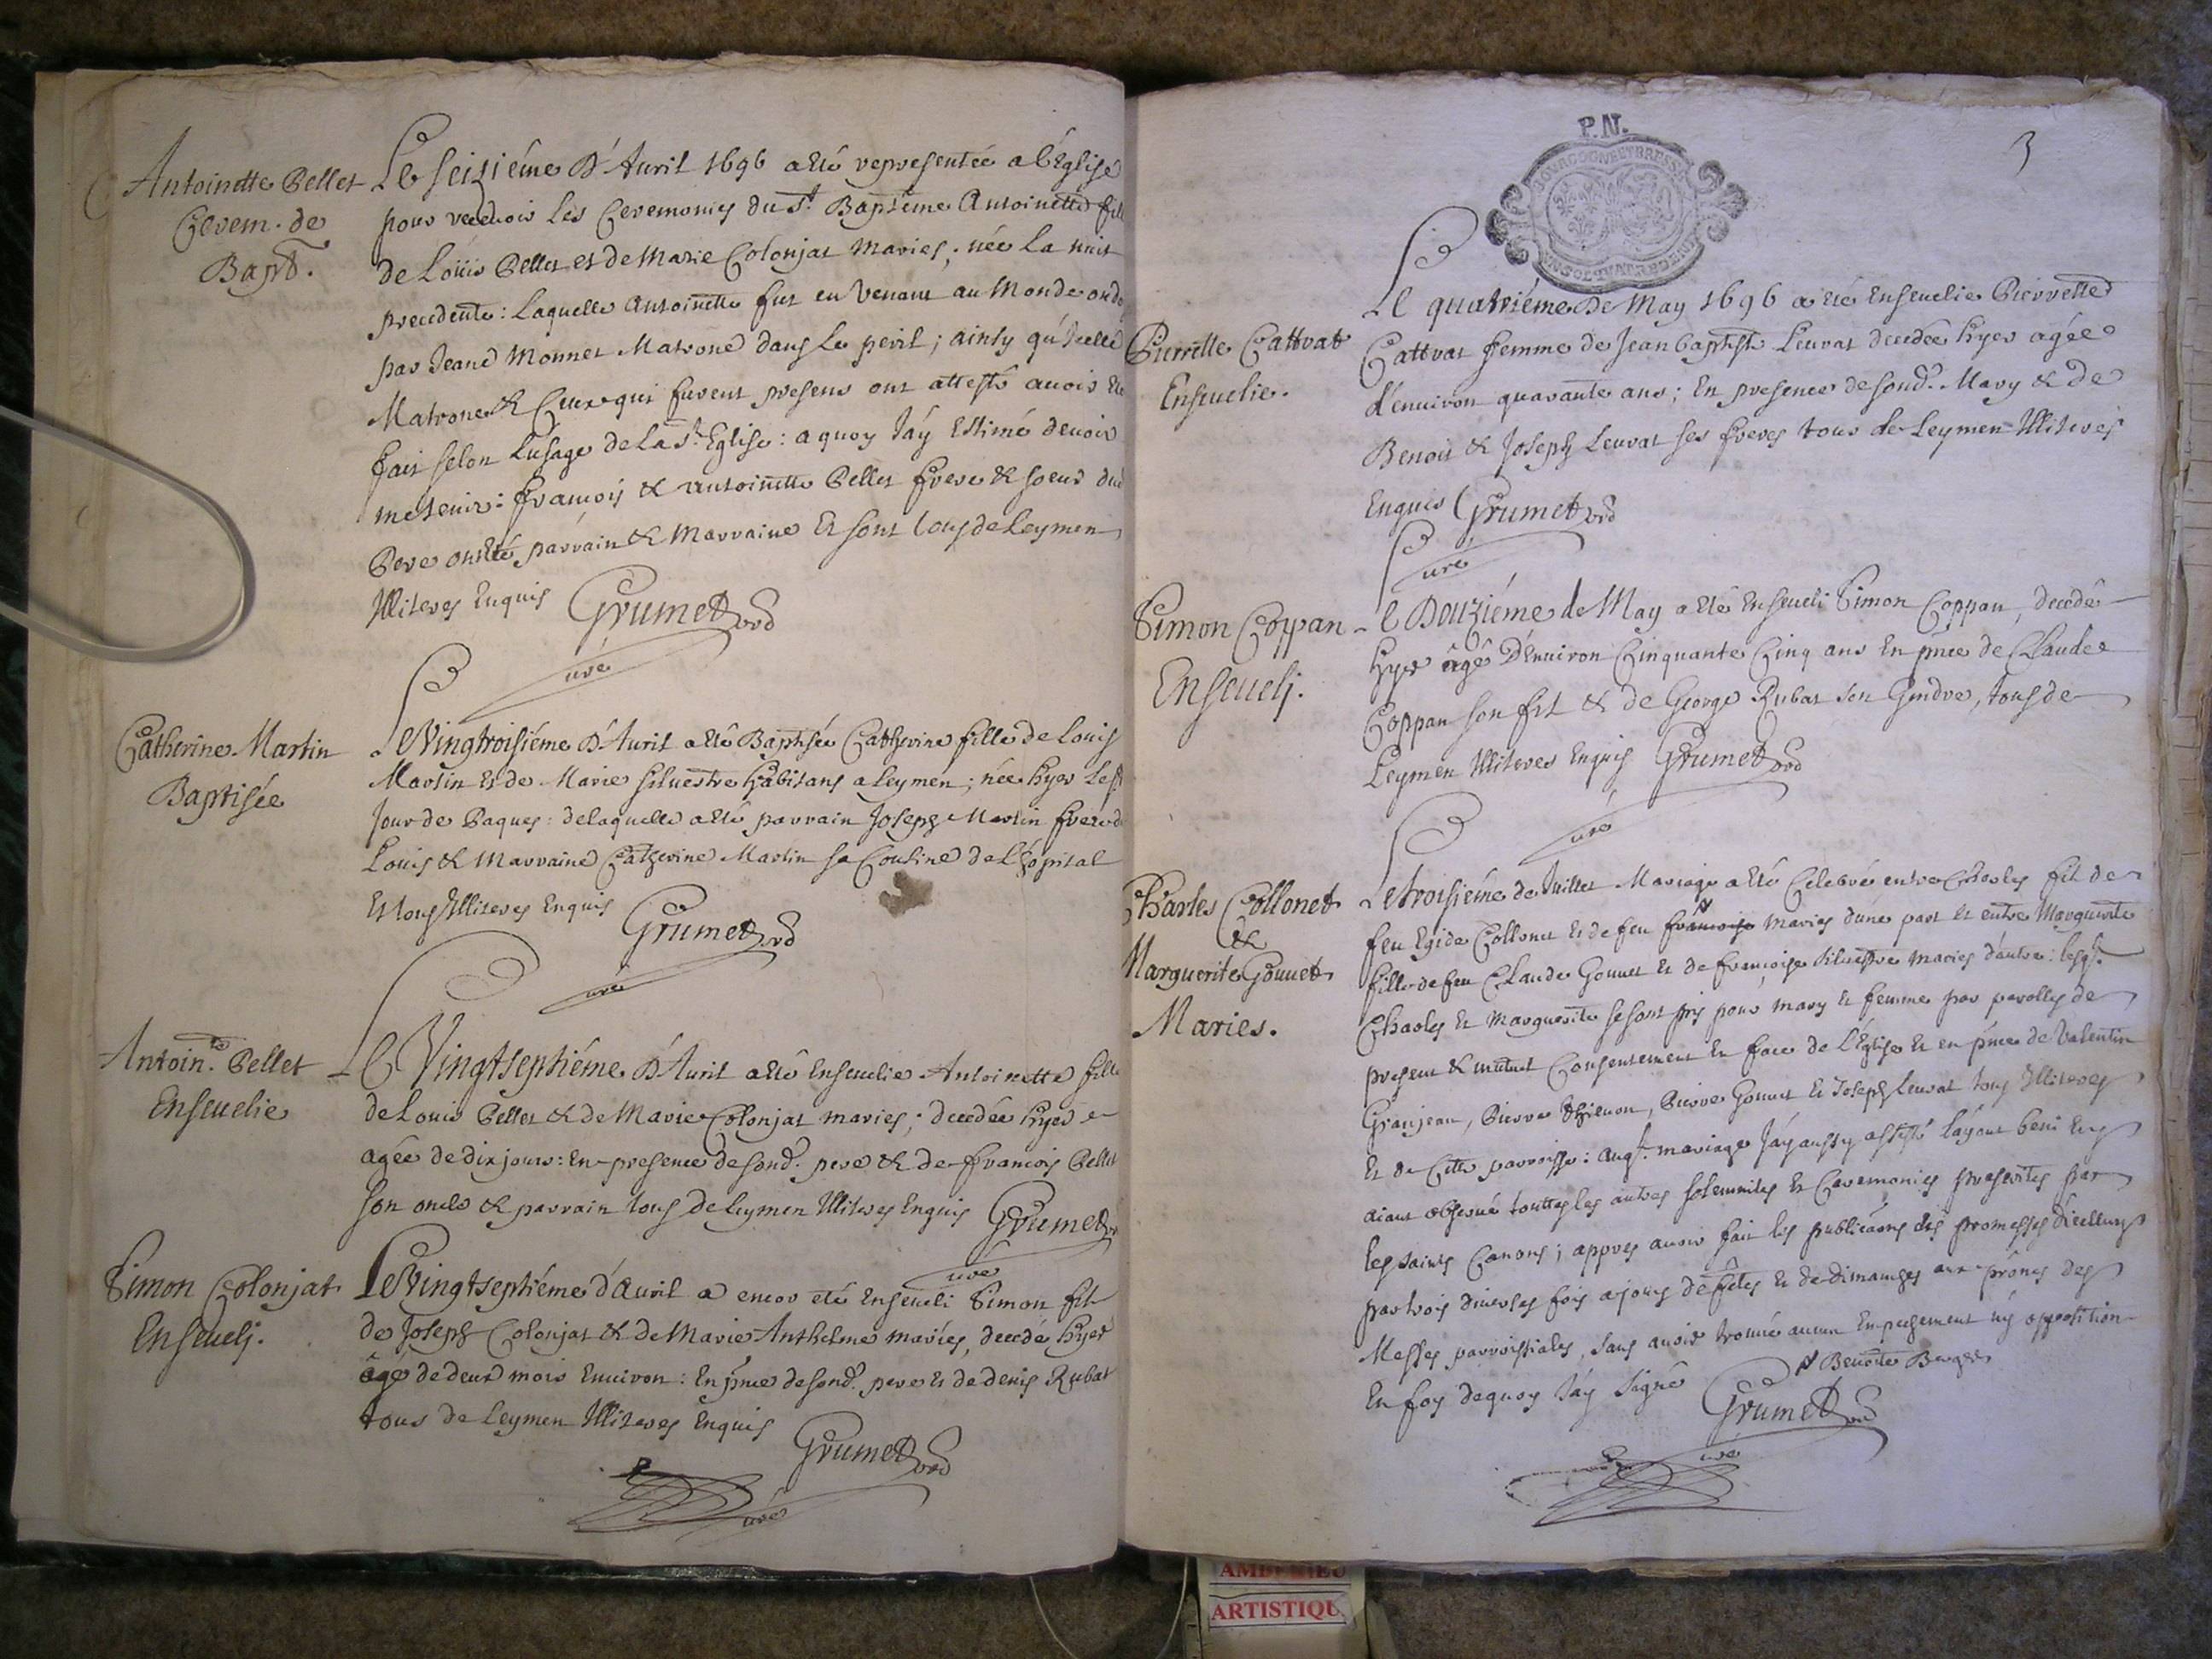 Antoinette Pellet
Cerem. de
Bapt.
Le seiziéme d'Auril 1696 a eté representée a l'Eglise
pour receuoir les Ceremonies du St. Baptême Antoinette fille
de Loüis Pellet et de Marie Colonjat Maries, née la nuit
precedente: laquelle Antoinette fut en Venant au Monde ondo
par Jeane Monnet Matrone dans le peril; ainsy qu'Icelle
Matrone & Ceux qui furent presens ont attesté auoir eté
fait selon l'usage de la Ste. Eglise: a quoy J'ay Estimé deuoir
me tenir: François & Antoinette Pellet frere & soeur dud
Pere ont eté parrain & Marraine Et sont tous de Leymen
Illiteres Enquis Grumet
Curé
Catherine Martin
Baptisée
Le Vingtroisiéme d'Auril a eté Baptisée Catherine fille de Louis
Martin et de Marie Siluestre habitans a Leymen; née hyer le st
Jour de Paques: de laquelle a eté parrain Joseph Martin frere d
Louis & Marraine Catherine Martin sa Cousine de L'hopital
Et tous Illiteres Enquis Grumet
Curé
Antoin.te Pellet
Enseuelie
Le Vingtseptiéme d'Auril a eté Enseuelie Antoinette fille
de Louis Pellet & de Marie Colonjat maries; decedée hyer
agée de dix jours: En presence de sond. pere & de François Pellet
son oncle & parrain tous de Leymen Illiteres Enquis Grumet
Curé
Simon Colonjat
Enseueli.
Le Vingtseptiéme d'Auril a encor eté Enseueli Simon fils
de Joseph Colonjat & de Marie Anthelme maries, decedé hyer
âgé de deux mois Enuiron: En pnce de sond. pere et de denis Rubat
tous de Leymen Illiteres Enquis Grumet
Curé
P.N.
3
BOURGOGNE ET BRESSE
UN SOL QUATRE DENIERS
Pierrette Cattvat
Enseuelie.
Le quatriéme De May 1696 a eté Enseuelie Pierrette
Cattvat femme de Jean baptiste Leurat decedée hyer agée
d'enuiron quarante ans; En presence de sond. Mary & de
Benoit & Joseph Leurat ses freres tous de Leymen Illiteres
Enquis Grumet
Curé
Simon Coppan
Enseueli.
Le Douziéme de May a eté Enseueli Simon Coppan, decedé
hyer âgé D'enuiron Cinquante Cinq ans En pnce de Claude
Coppan son fils & de George Rubat son Gendre, tous de
Leymen Illiteres Enquis Grumet
Curé
Charles Collonet
&
Marguerite Gonnet
Maries.
Le troisiéme de Juillet Mariage a eté Celebré entre Charles fils de
feu Egide Collonet et de feu françoise Maries d'une part et entre Marguerite
fille de feu Claude Gonnet et de françoise Siluestre maries d'autre: lesqs.
Charles et Marguerite se sont pris pour mary et femme par parolles de
present & mutuel Consentement En face de L'Eglise et en pnce de Valentin
Granjean, Pierre Thieuon, Pierre Gonnet et Joseph Leurat tous Illiteres
Et de Cette parroisse: auql. mariage J'ay aussy assisté l'ayant beni En y
aiant obserué touttes les autres solemnites et Ceremonies prescrites par
les saints Canons; appres auoir fait les publicaons des promesses d'icelluy
par trois diuerses fois a jours de fêtes et de dimanches aux prônes des
Messes parroissiales, sans auoir trouué aucun Enpechement ny opposition
En foy dequoy J'ay signé
Benoite Berger
Grumet
Curé
AMBERIEU
ARTISTIQU